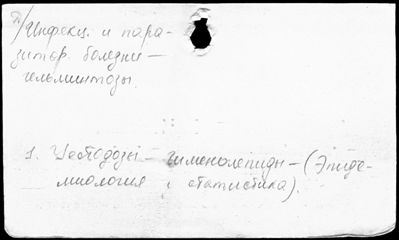 П/Инфекц. и пара-
зитор. болезни —
гельминтозы.
1. Цестодозы — гименолепиды — (Эпиде-
миология, статистика).